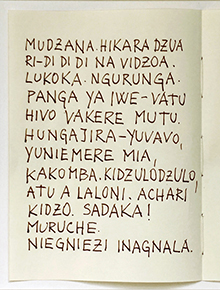 MUDZANA. HIKARA DZUA
RI-DI DI DI NA VIDZOA.
LUKOKA. NGURUNGA.
PANGA YA IWE-VATU
HIVO VAKERE MUTU.
HUNGAJIRA-YUVAVO,
YUNIEMERE MIA,
KAKOMBA. KIDZULODZULO,
ATU A LALONI. ACHARI
KIDZO. SADAKA!
MURUCHE.
NIEGNIEZI INAGNALA.